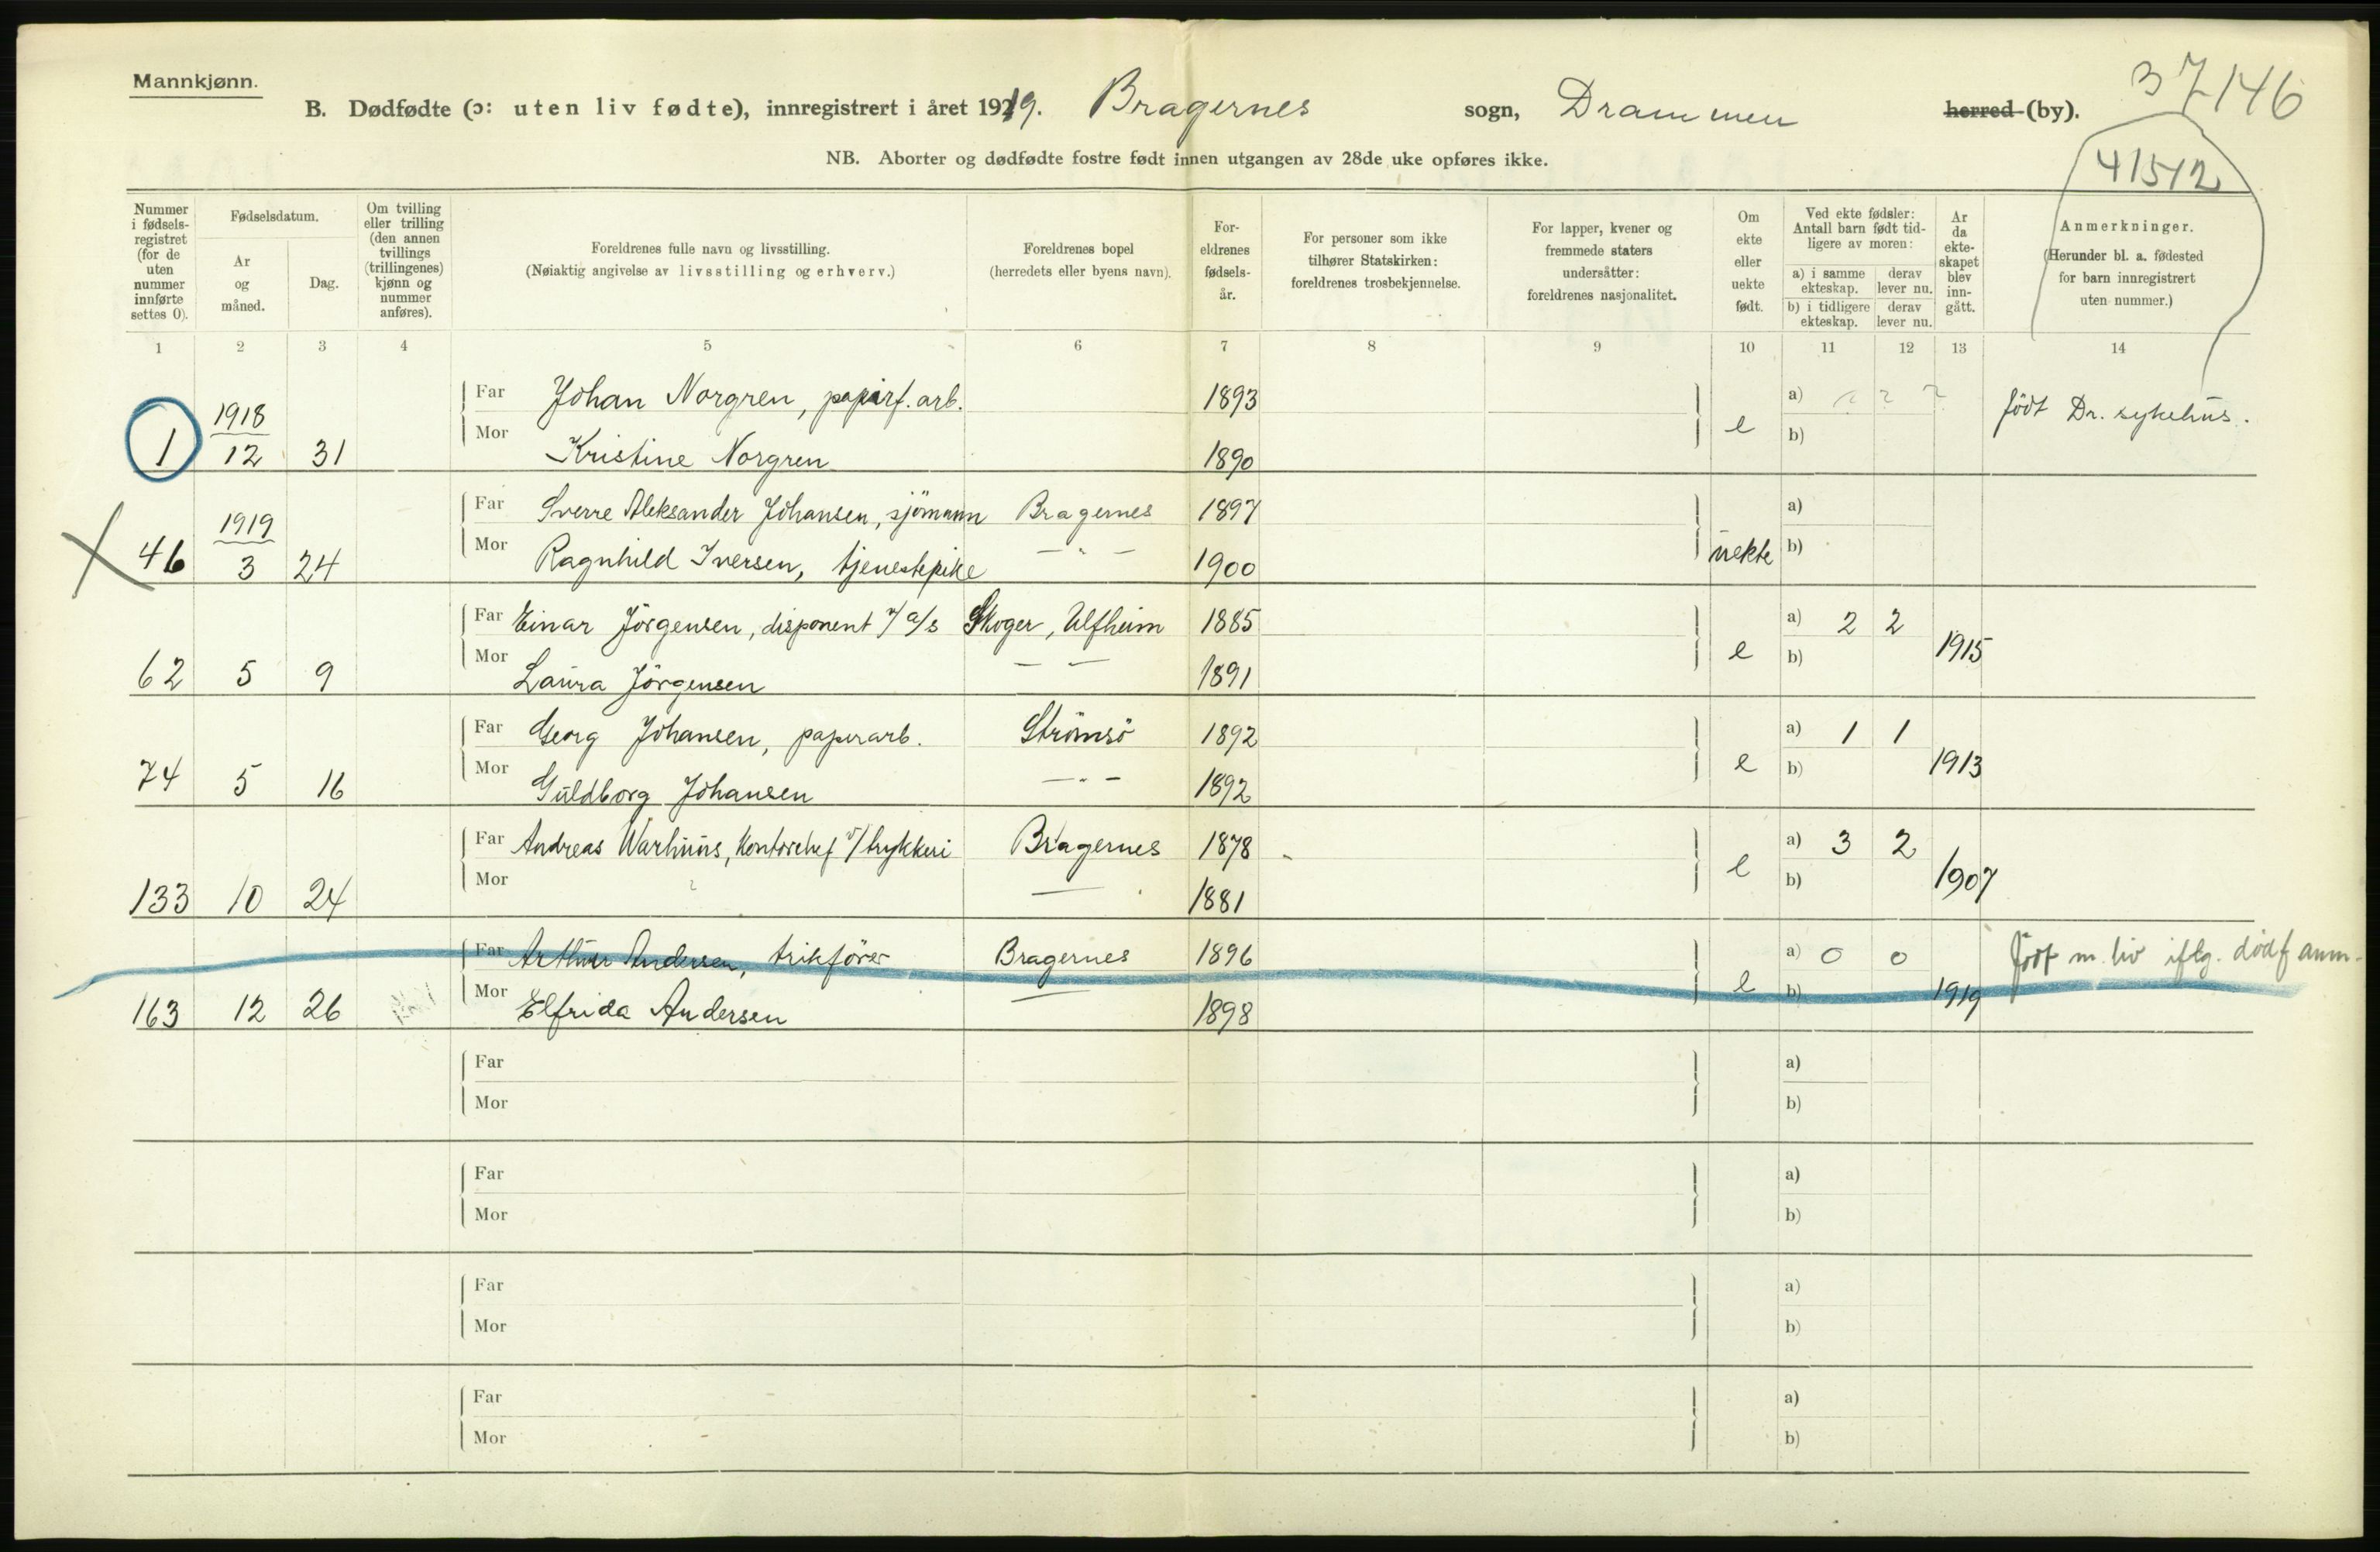 Mannkjønn.
B. Dødfødte (ɔ: uten liv fødte), innregistrert i året 1919. Bragernes sogn, Drammen herred (by).
37146
41512
NB. Aborter og dødfødte fostre født innen utgangen av 28de uke opføres ikke.
Nummer i fødsels-registret (for de uten nummer innførte settes 0).
Fødselsdatum.
År og måned.
Dag.
Om tvilling eller trilling (den annen tvillings (trillingenes) kjønn og nummer anføres).
Foreldrenes fulle navn og livsstilling.
(Nøiaktig angivelse av livsstilling og erhverv.)
Foreldrenes bopel
(herredets eller byens navn).
For-eldrenes fødsels-år.
For personer som ikke tilhører Statskirken: foreldrenes trosbekjennelse.
For lapper, kvener og fremmede staters undersåtter: foreldrenes nasjonalitet.
Om ekte eller uekte født.
Ved ekte fødsler: Antall barn født tid-ligere av moren:
a) i samme ekteskap. derav lever nu.
b) i tidligere ekteskap. derav lever nu.
År da ekte-skapet blev inn-gått.
Anmerkninger.
(Herunder bl. a. fødested for barn innregistrert uten nummer.)
1 2 3 4 5 6 7 8 9 10 11 12 13 14
1918
Far Johan Norgren, papirf. arb. 1893 a) ? ? ?
1 12 31 Mor Kristine Norgren 1890 e b) födt Dr. sykehus.
1919
Far Sverre Aleksander Johansen, sjömann Bragernes 1897 a)
46 3 24 Mor Ragnhild Iversen, tjenestepike — " — 1900 uekte b)
Far Einar Jörgensen, disponent v/ a/s Skoger, Ulfheim 1885 a) 2 2
62 5 9 Mor Laura Jörgensen — — 1891 e b) 1915
Far Georg Johansen, papirarb. Strömsö 1892 a) 1 1
74 5 16 Mor Guldborg Johansen — " — 1892 e b) 1913
Far Andreas Warhuus, Kontorchef v/ trykkeri Bragernes 1878 a) 3 2
133 10 24 Mor ? — 1881 e b) 1907
Far Arthur Andersen, trikförer Bragernes 1896 a) 0 0 Födt m. liv iflg. dödf anm.
163 12 26 Mor Elfrida Andersen — 1898 e b) 1919
Far a)
Mor b)
Far a)
Mor b)
Far a)
Mor b)
Far a)
Mor b)